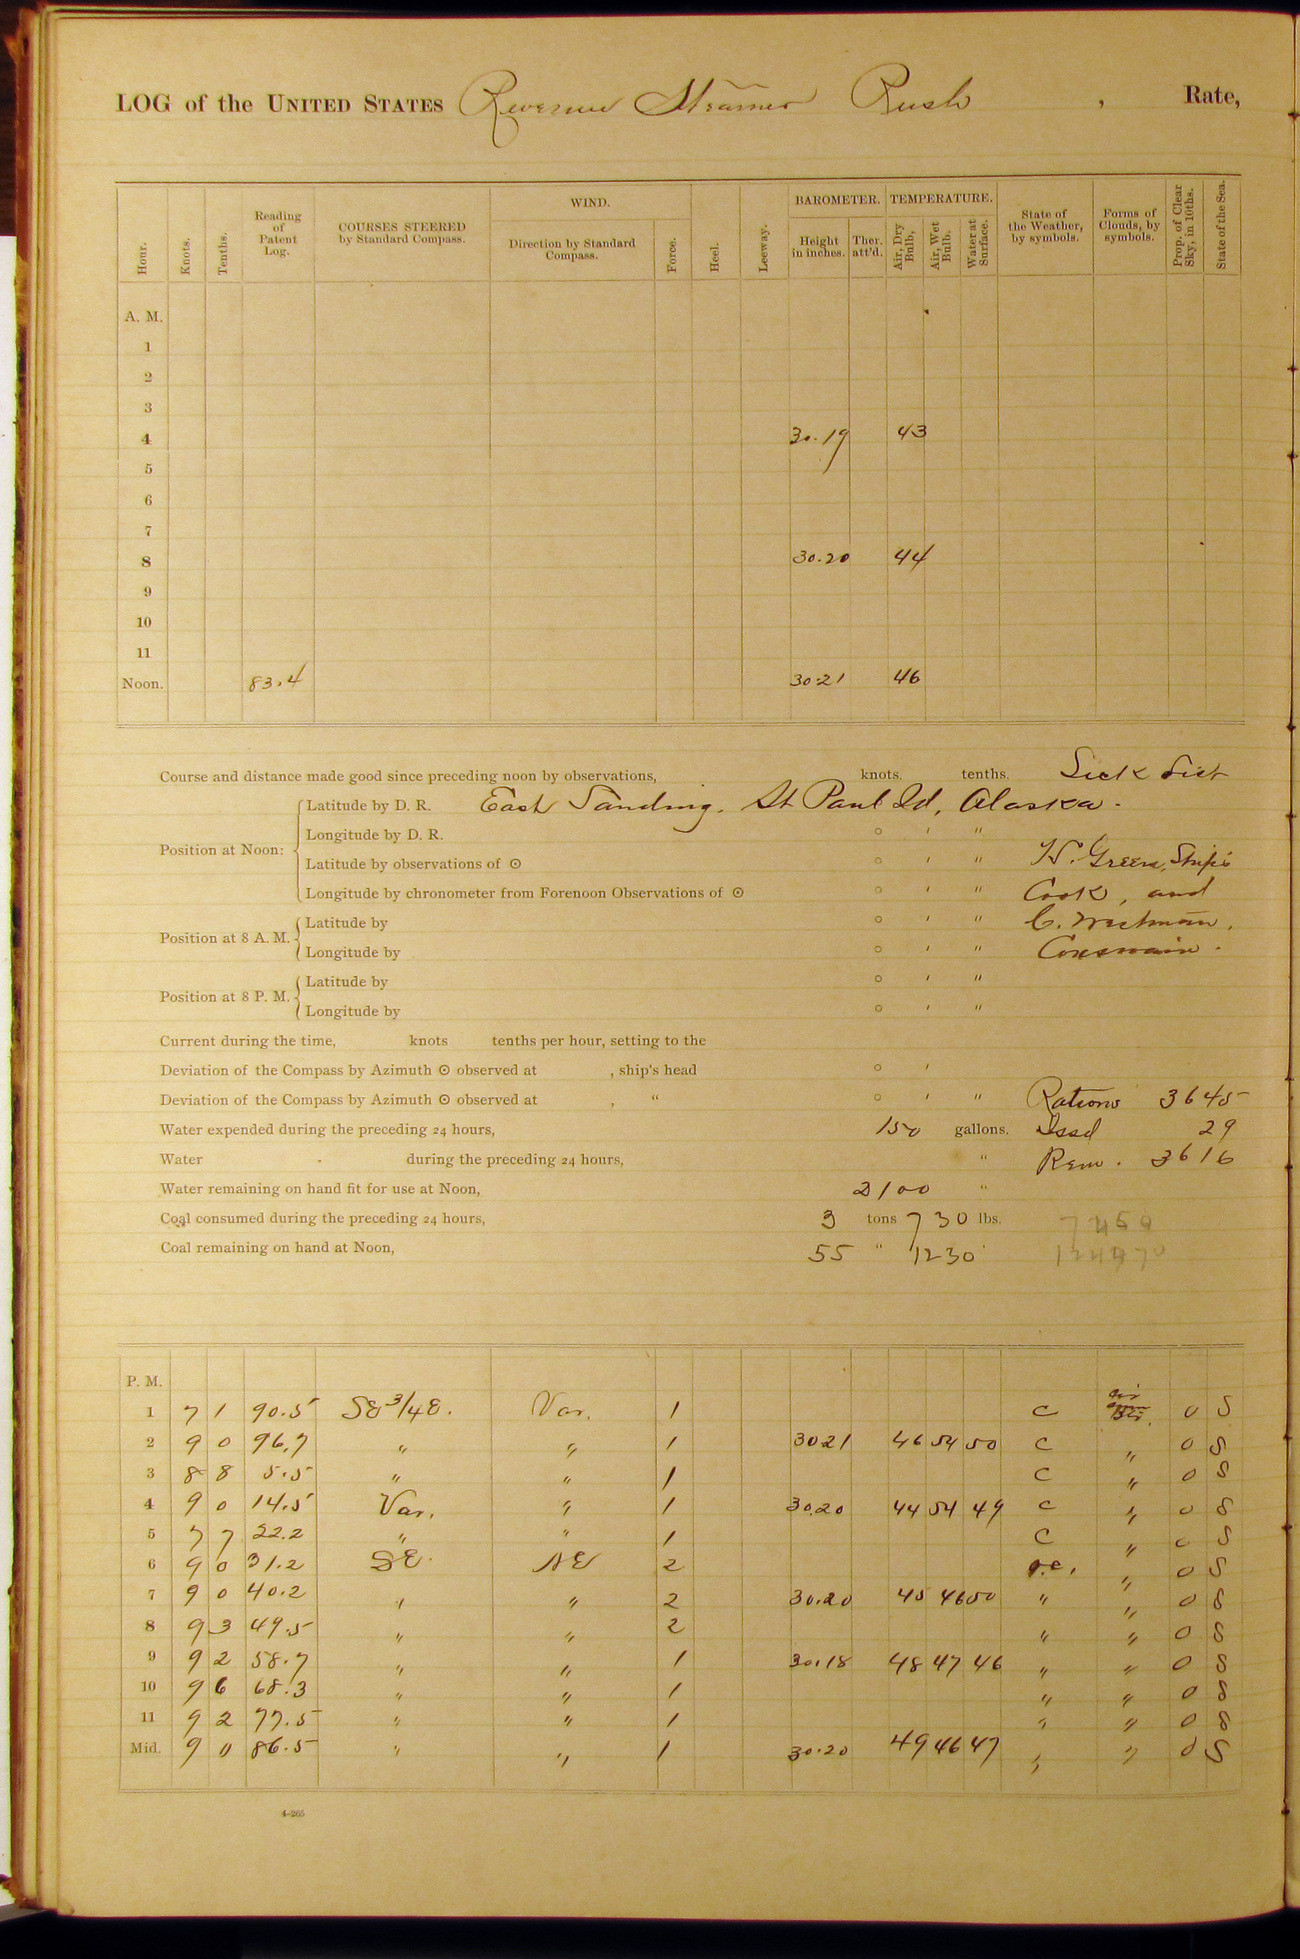 LOG of the UNITED STATES Revenue Steamer Rush , Rate,
Hour. Knots. Tenths. Reading of Patent Log. COURSES STEERED by Standard Compass. WIND. Direction by Standard Compass. Force. Heel. Leeway. BAROMETER. Height in inches. Ther. att'd. TEMPERATURE. Air, Dry Bulb, Air, Wet Bulb. Water at Surface. State of the Weather, by symbols. Forms of Clouds, by symbols. Prop. of Clear Sky, in 10ths. State of the Sea.
A. M.
1
2
3
4 30.19 43
5
6
7
8 30.20 44
9
10
11
Noon. 83.4 30.21 46
Course and distance made good since preceding noon by observations, knots. tenths. Sick List
Position at Noon:
Latitude by D. R. East Landing. St Paul Id, Alaska.
Longitude by D. R. ° ′ ″
Latitude by observations of ☉ ° ′ ″ H. Green, Ship's
Longitude by chronometer from Forenoon Observations of ☉ ° ′ ″ Cook, and
Position at 8 A. M.
Latitude by ° ′ ″ C. Westman,
Longitude by ° ′ ″ Coxswain.
Position at 8 P. M.
Latitude by ° ′ ″
Longitude by ° ′ ″
Current during the time, knots tenths per hour, setting to the
Deviation of the Compass by Azimuth ☉ observed at , ship's head ° ′
Deviation of the Compass by Azimuth ☉ observed at , " ° ′ ″ Rations 3645
Water expended during the preceding 24 hours, 150 gallons. Issd 29
Water during the preceding 24 hours, " Rem. 3616
Water remaining on hand fit for use at Noon, 2100 "
Coal consumed during the preceding 24 hours, 3 tons 730 lbs.
Coal remaining on hand at Noon, 55 " 1230 "
P. M.
1 7 1 90.5 SE 3/4 E. Var. 1 C 0 S
2 9 0 96.7 " " 1 30.21 46 54 50 C " 0 S
3 8 8 5.5 " " 1 C " 0 S
4 9 0 14.5 Var. " 1 30.20 44 54 49 C " 0 S
5 7 7 22.2 " " 1 C " 0 S
6 9 0 31.2 SE. NE 2 o.c. " 0 S
7 9 0 40.2 " " 2 30.20 45 46 50 " " 0 S
8 9 3 49.5 " " 2 " " 0 S
9 9 2 58.7 " " 1 30.18 48 47 46 " " 0 S
10 9 6 68.3 " " 1 " " 0 S
11 9 2 77.5 " " 1 " " 0 S
Mid. 9 0 86.5 " " 1 30.20 49 46 47 " " 0 S
4-265